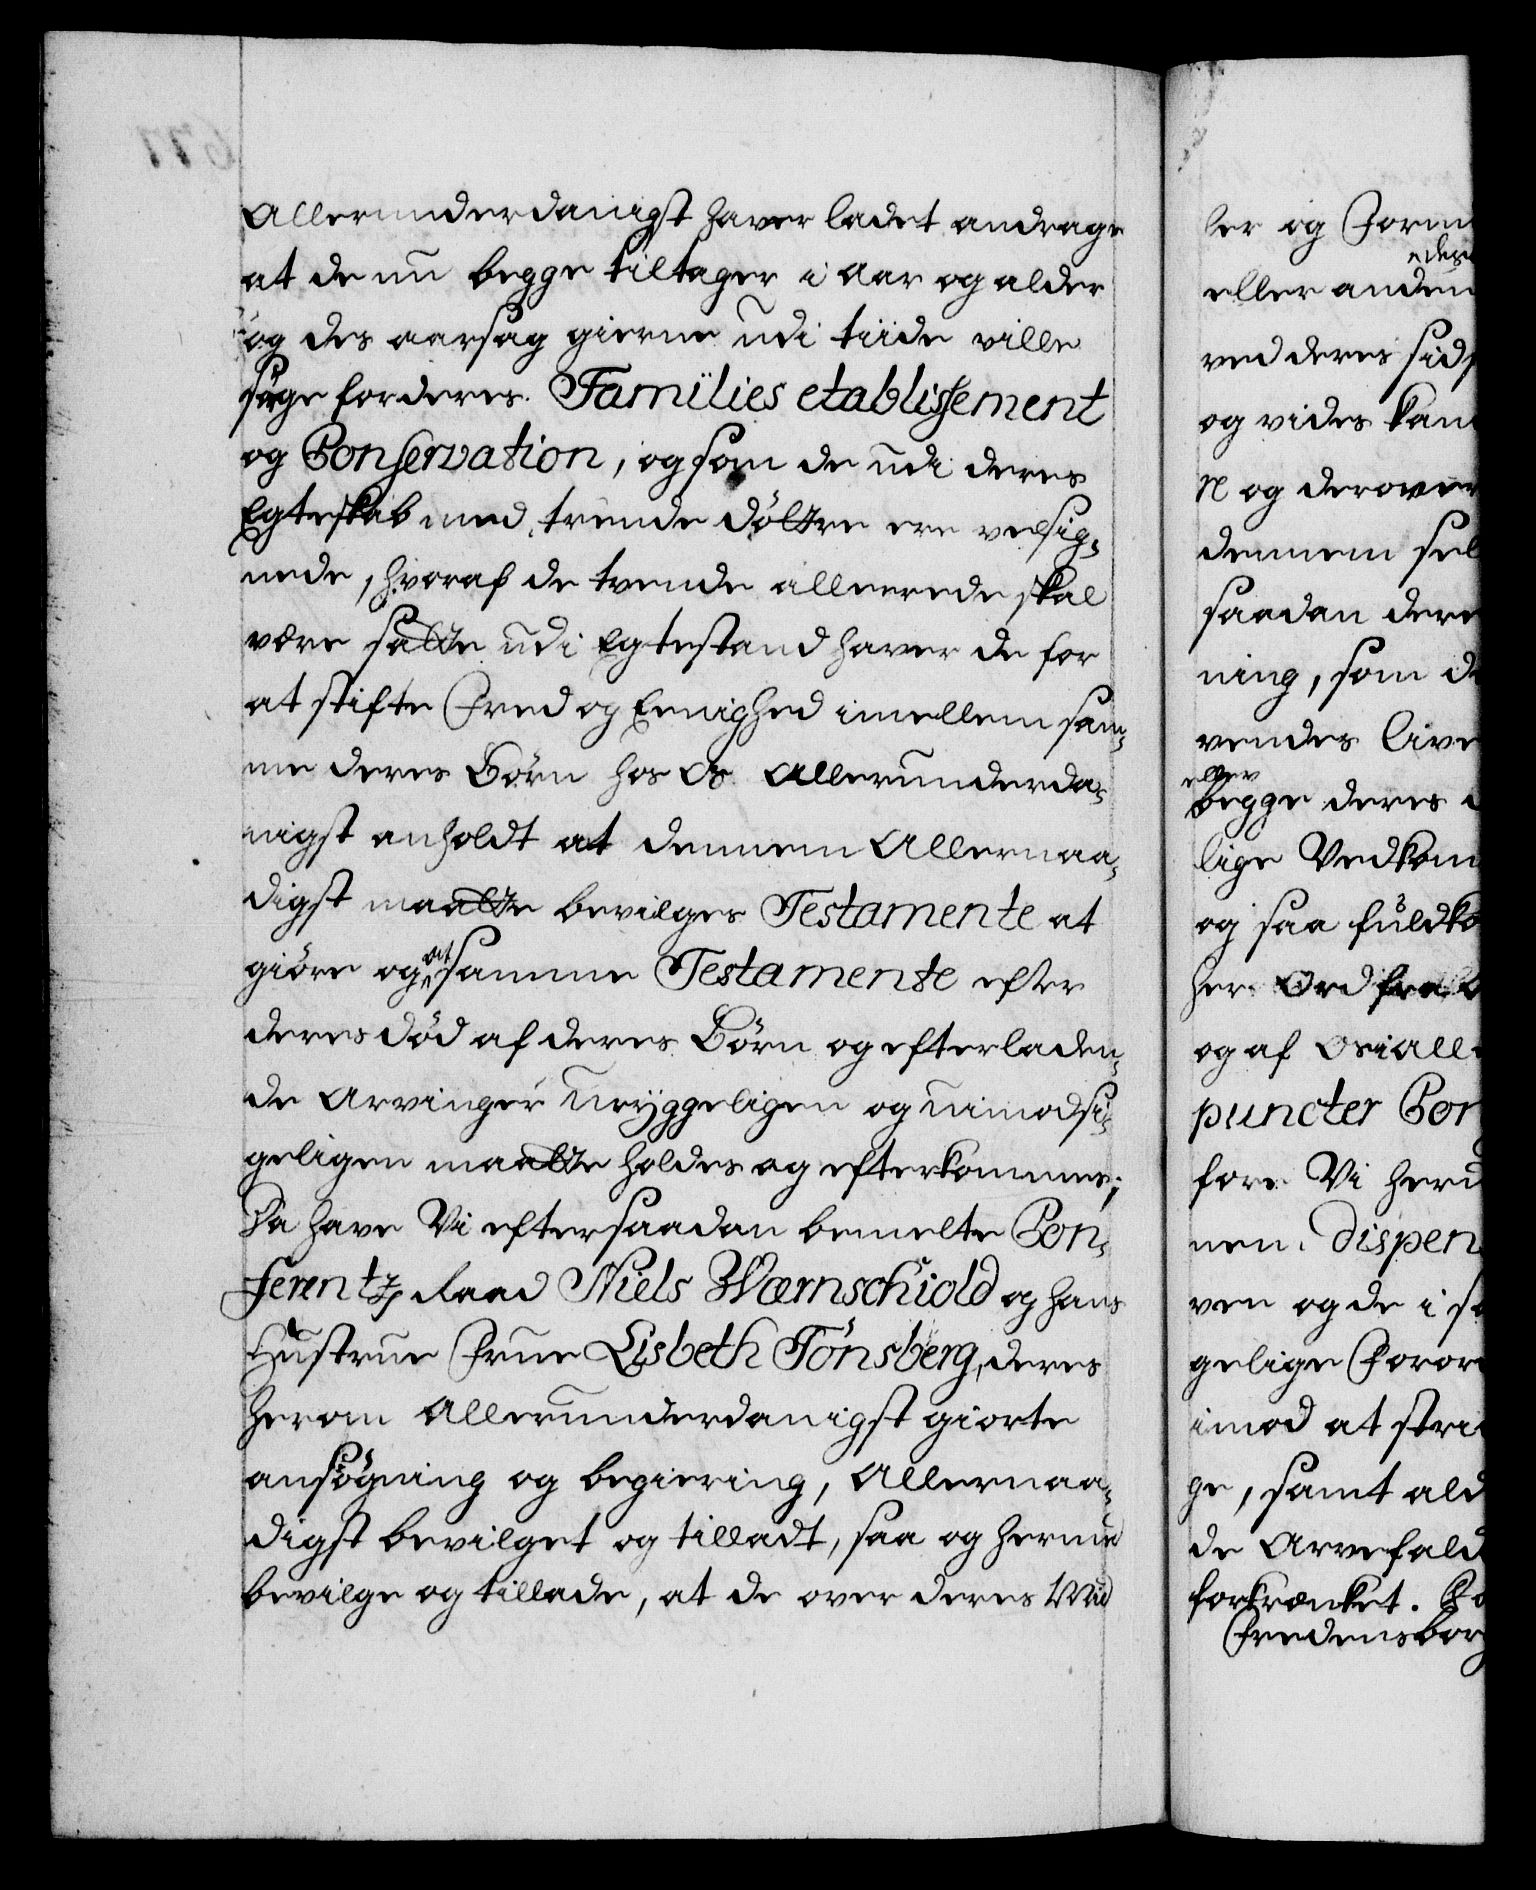 Allerunderdanigst haver ladet andrage
at de nu begge tiltager i Aar og alder
og des aarsag gierne udi tiide ville
sørge for deres Famïlies etablissement
og Conservation, og som de udi deres
Egteskab med trende döttre ere velsig¬
nede, hvoraf de tvende allerrede skal
være satte udi Egtestand haver de for
at stifte Fred og Eenighed imellem sam¬
me deres Börn hos Os Allerunderda¬
nigst anholdt at dennem Allernaa¬
digst maatte bevilges Testamente at
giöre og at samme Testamente efter
deres död af deres Börn og efterladen¬
de Arvinger uryggeligen og uimodsi¬
geligen maatte holdes og efterkommes;
Da have Vi efter saadan bemelte Con¬
ferentz Raad Niels Wærnschiold og hans
Hustrue Frue Lisbeth Tönsberg, deres
herom Allerunderdanigst giorte
ansögning og begiering, Allernaa¬
digst bevilget og tilladt, saa og hermed
bevilge og tillade, at de over deres Mid
ler og Form
eller anden
ved deres sids
og vides kan
N og derover
dennem sel
saadan dere
ning, som de
vendes live
eller
begge deres
lige Vedkom
og saa fuldko
her Ord fra
og af Os i All
puncter Con
fore Vi herd
nen. dispen
ven og de i sa
gelige Foror
imod at stri
ge, samt ald
de Arvefald
forkrænket.
Fredensborg
677